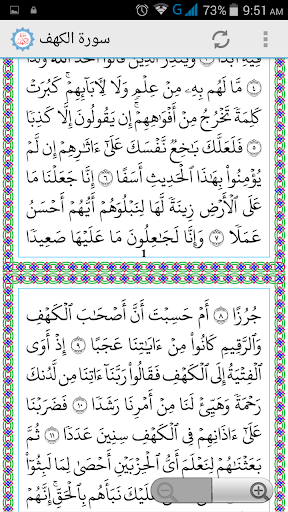 73% 9:51 AM
سورة الكهف
فِيهِ أَبَدًا ٣ وَيُنذِرَ ٱلَّذِينَ قَالُواْ ٱتَّخَذَ ٱللَّهُ وَلَدًا
٤ مَّا لَهُم بِهِۦ مِنْ عِلْمٍ وَلَا لِأٓبَآئِهِمْ ۚ كَبُرَتْ
كَلِمَةً تَخْرُجُ مِنْ أَفْوَٰهِهِمْ ۚ إِن يَقُولُونَ إِلَّا كَذِبًا
٥ فَلَعَلَّكَ بَٰخِعٌ نَّفْسَكَ عَلَىٰٓ ءَاثَٰرِهِمْ إِن لَّمْ
يُؤْمِنُواْ بِهَٰذَا ٱلْحَدِيثِ أَسَفًا ٦ إِنَّا جَعَلْنَا مَا
عَلَى ٱلْأَرْضِ زِينَةً لَّهَا لِنَبْلُوَهُمْ أَيُّهُمْ أَحْسَنُ
عَمَلًا ٧ وَإِنَّا لَجَٰعِلُونَ مَا عَلَيْهَا صَعِيدًا
1
جُرُزًا ٨ أَمْ حَسِبْتَ أَنَّ أَصْحَٰبَ ٱلْكَهْفِ
وَٱلرَّقِيمِ كَانُواْ مِنْ ءَايَٰتِنَا عَجَبًا ٩ إِذْ أَوَى
ٱلْفِتْيَةُ إِلَى ٱلْكَهْفِ فَقَالُواْ رَبَّنَآ ءَاتِنَا مِن لَّدُنكَ
رَحْمَةً وَهَيِّئْ لَنَا مِنْ أَمْرِنَا رَشَدًا ١٠ فَضَرَبْنَا
عَلَىٰٓ ءَاذَانِهِمْ فِى ٱلْكَهْفِ سِنِينَ عَدَدًا ١١ ثُمَّ
بَعَثْنَٰهُمْ لِنَعْلَمَ أَىُّ ٱلْحِزْبَيْنِ أَحْصَىٰ لِمَا لَبِثُوٓاْ
عَلَيْكَ نَبَأَهُم بِٱلْحَقِّ ۚ إِنَّهُمْ